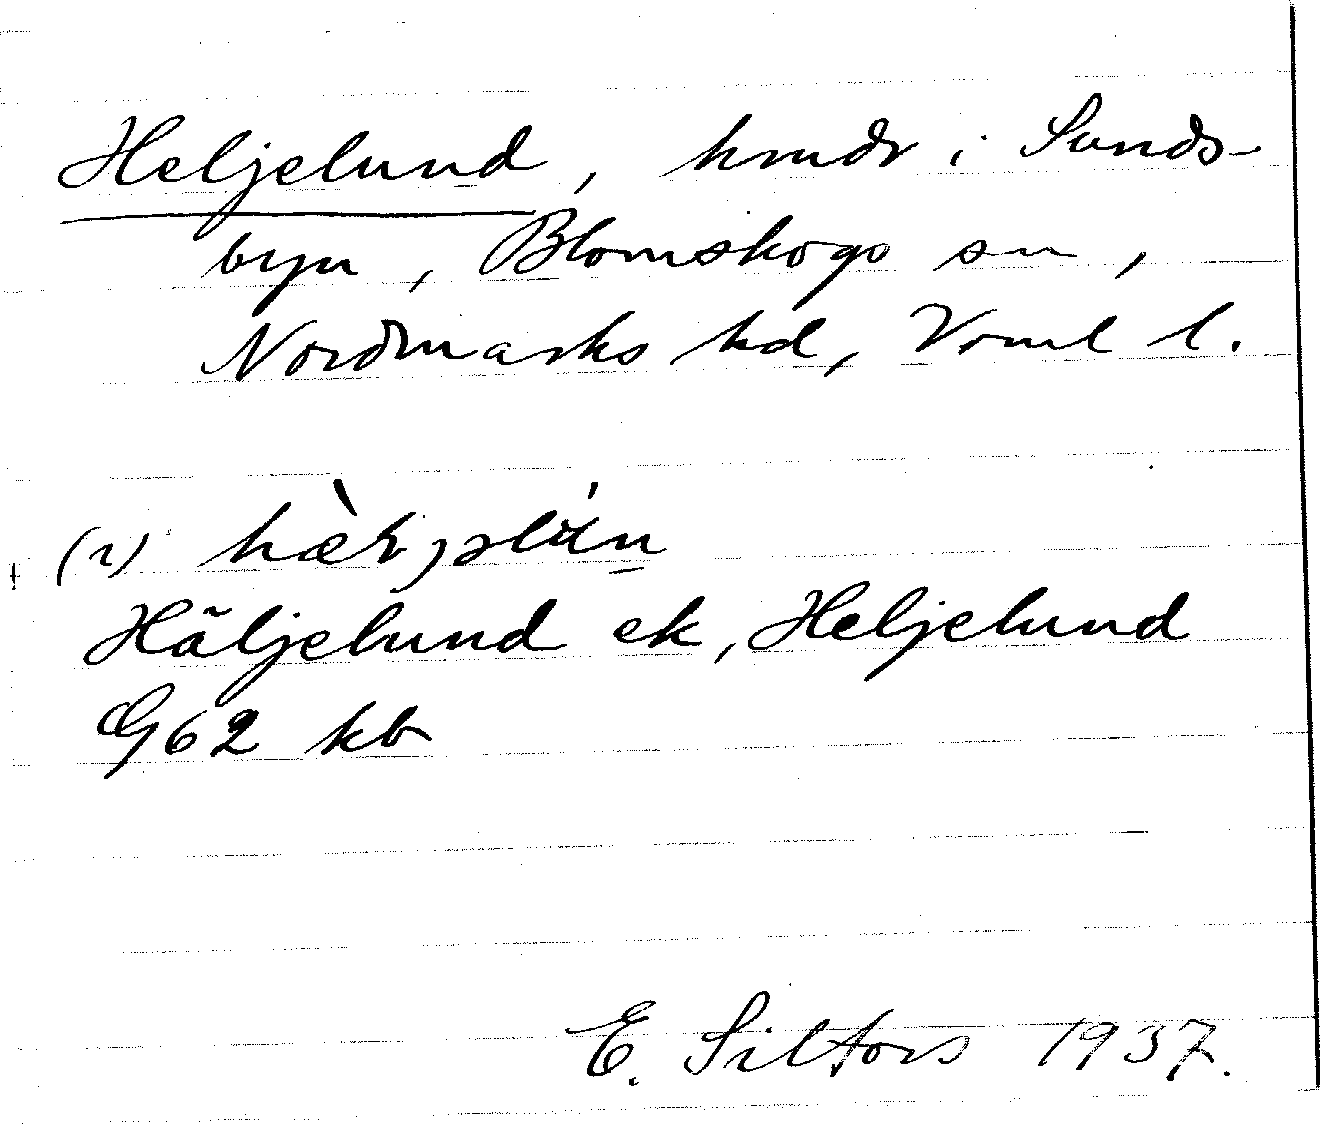 Heljelund, hmdr i Sunds-
byn, Blomskogs sn,
Nordmarks hd, Vrml l.
(2)
Häljelund ek, Heljelund
G62 kb
E. Siltors 1937.